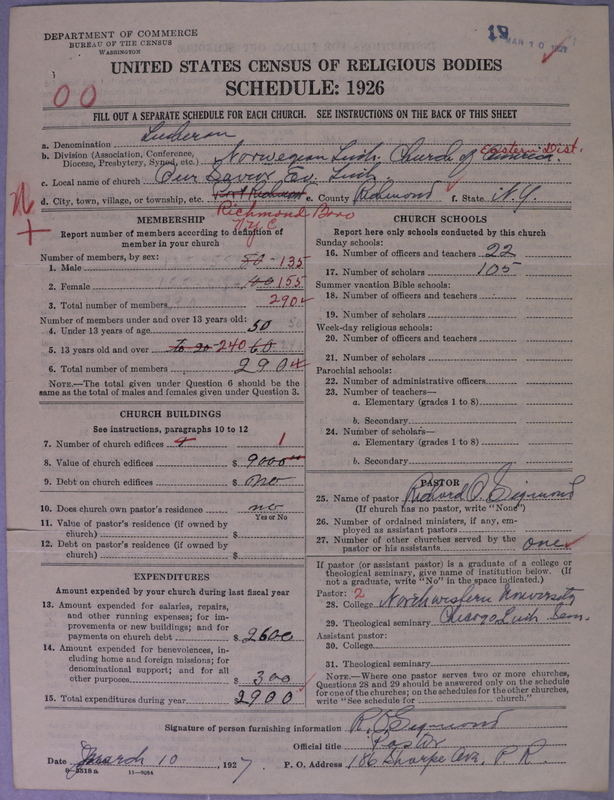 DEPARTMENT OF COMMERCE
BUREAU OF THE CENSUS
WASHINGTON
19
MAR 10 1927
UNITED STATES CENSUS OF RELIGIOUS BODIES
SCHEDULE: 1926
00
FILL OUT A SEPARATE SCHEDULE FOR EACH CHURCH. SEE INSTRUCTIONS ON THE BACK OF THIS SHEET
a. Denomination Lutheran
b. Division (Association, Conference, Diocese, Presbytery, Synod, etc.) Norwegian Luth. Church of America. Eastern Dist.
c. Local name of church Our Savior Ev. Luth.
d. City, town, village, or township, etc. Port Richmond e. County Richmond f. State N.Y.
Richmond Boro
N.Y.C
MEMBERSHIP
Report number of members according to definition of
member in your church
Number of members, by sex:
1. Male 50 135
2. Female 40 155
3. Total number of members 290
Number of members under and over 13 years old:
4. Under 13 years of age 50
5. 13 years old and over 240 60
6. Total number of members 290
NOTE.—The total given under Question 6 should be the
same as the total of males and females given under Question 3.
CHURCH BUILDINGS
See instructions, paragraphs 10 to 12
7. Number of church edifices 1
8. Value of church edifices $ 9000
9. Debt on church edifices $ no
10. Does church own pastor's residence no
Yes or No
11. Value of pastor's residence (if owned by
church) $
12. Debt on pastor's residence (if owned by
church) $
EXPENDITURES
Amount expended by your church during last fiscal year
13. Amount expended for salaries, repairs,
and other running expenses; for im-
provements or new buildings; and for
payments on church debt $ 2600
14. Amount expended for benevolences, in-
cluding home and foreign missions; for
denominational support; and for all
other purposes $ 300
15. Total expenditures during year $ 2900
CHURCH SCHOOLS
Report here only schools conducted by this church
Sunday schools:
16. Number of officers and teachers 22
17. Number of scholars 105
Summer vacation Bible schools:
18. Number of officers and teachers
19. Number of scholars
Week-day religious schools:
20. Number of officers and teachers
21. Number of scholars
Parochial schools:
22. Number of administrative officers
23. Number of teachers—
a. Elementary (grades 1 to 8)
b. Secondary
24. Number of scholars—
a. Elementary (grades 1 to 8)
b. Secondary
PASTOR
25. Name of pastor Richard O. Sigmond
(If church has no pastor, write "None")
26. Number of ordained ministers, if any, em-
ployed as assistant pastors
27. Number of other churches served by the
pastor or his assistants one
If pastor (or assistant pastor) is a graduate of a college or
theological seminary, give name of institution below. (If
not a graduate, write "No" in the space indicated.)
Pastor: 2
28. College Northwestern University
29. Theological seminary Chicago Luth Sem.
Assistant pastor:
30. College
31. Theological seminary
NOTE.—Where one pastor serves two or more churches,
Questions 28 and 29 should be answered only on the schedule
for one of the churches; on the schedules for the other churches,
write "See schedule for church."
Signature of person furnishing information R. O. Sigmond
Official title Pastor
Date March 10, 1927 P. O. Address 186 Sharpe Ave. P. R.
8-3318a 11-9084